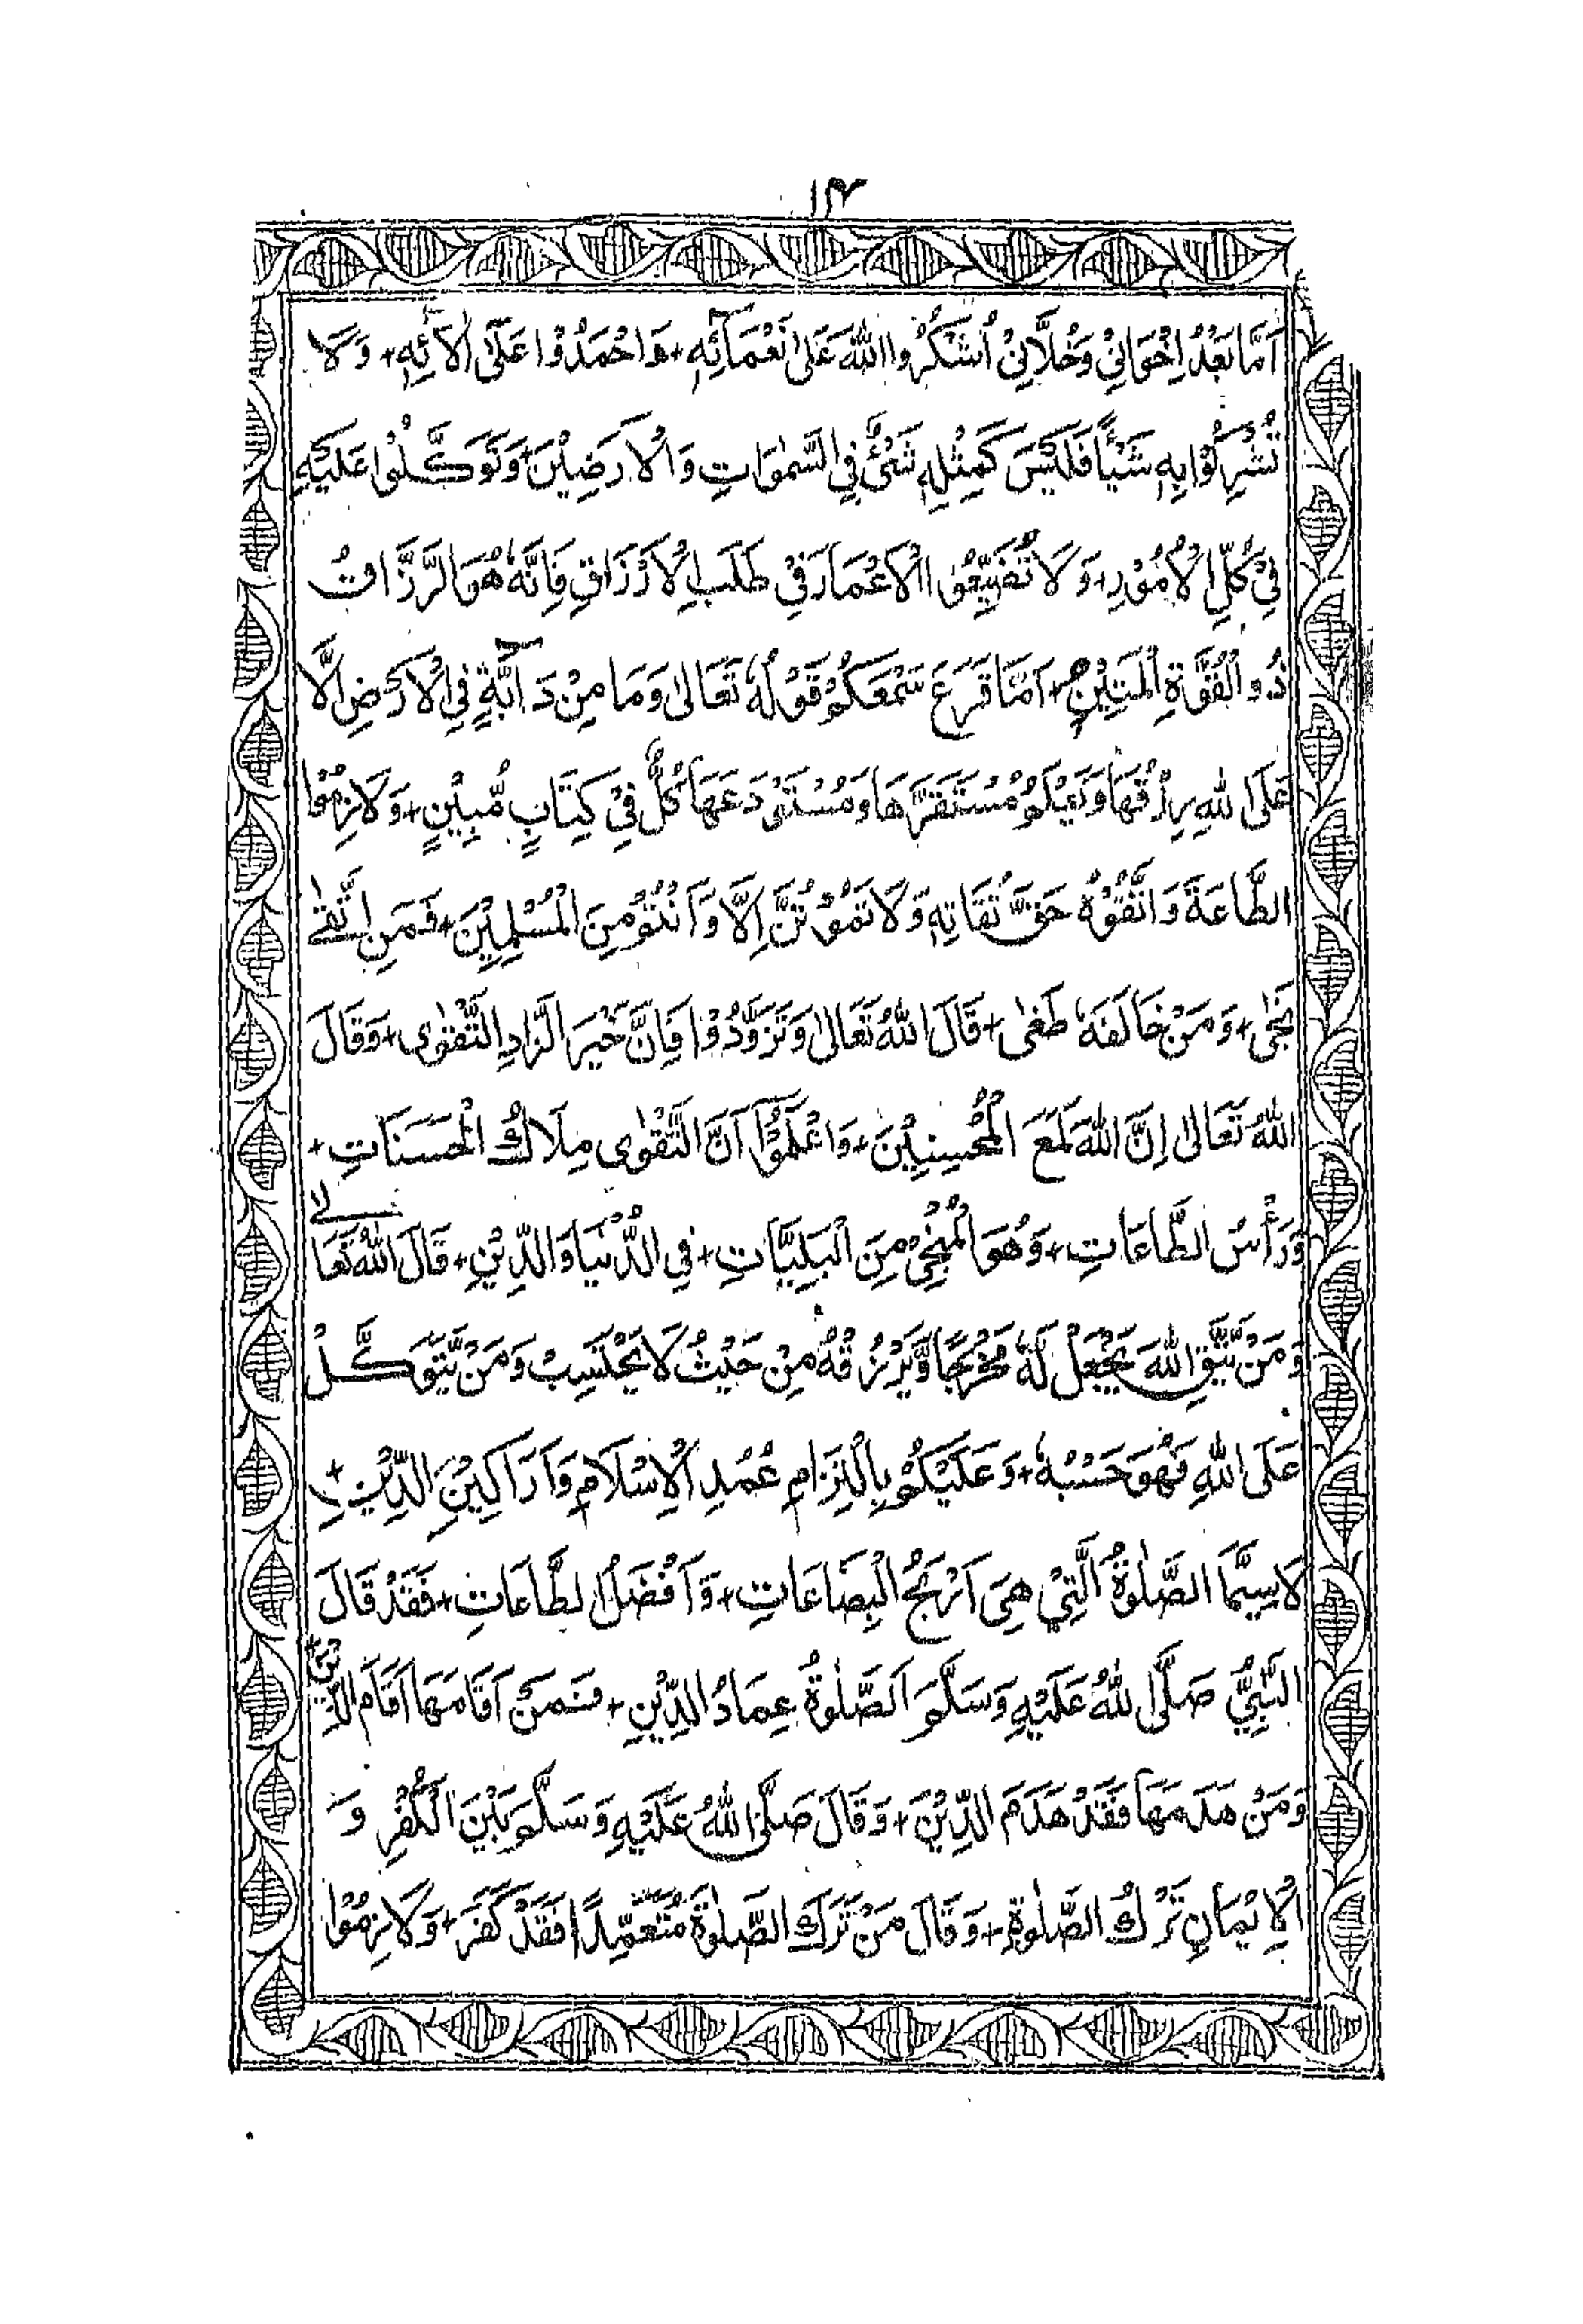 ١٣٢
اَمَّا بَعْدُ اِخْوَانِيْ وَخُلَّانِيْ اُشْكُرُوا اللّٰهَ عَلٰى نَعْمَآئِهٖ + وَاحْمَدُوْا عَلٰى اٰلَآئِهٖ + وَلَا
تُشْرِكُوْا بِهٖ شَيْأً فَلَيْسَ كَمِثْلِهٖ شَيْءٌ فِي السَّمٰوَاتِ وَالْاَرَضِيْنَ + وَتَوَكَّلُوْا عَلَيْهِ
فِيْ كُلِّ الْاُمُوْرِ + وَلَا تُضَيِّعُوا الْاَعْمَارَ فِيْ طَلَبِ الْاَرْزَاقِ فَاِنَّهٗ هُوَ الرَّزَّاقُ
ذُو الْقُوَّةِ الْمَتِيْنِ + اَمَّا قَرَعَ سَمْعَكُمْ قَوْلُهٗ تَعَالٰى وَمَا مِنْ دَآبَّةٍ فِي الْاَرْضِ اِلَّا
عَلَى اللّٰهِ رِزْقُهَا وَيَعْلَمُ مُسْتَقَرَّهَا وَمُسْتَوْدَعَهَا كُلٌّ فِيْ كِتَابٍ مُّبِيْنٍ + وَلَازِمُوْا
الطَّاعَةَ وَاتَّقُوْهُ حَقَّ تُقَاتِهٖ وَلَا تَمُوْتُنَّ اِلَّا وَاَنْتُمْ مِنَ الْمُسْلِمِيْنَ + فَمَنِ اتَّقٰے
نَجٰى + وَمَنْ خَالَفَهٗ طَغٰى + قَالَ اللّٰهُ تَعَالٰى وَتَزَوَّدُوْا فَاِنَّ خَيْرَ الزَّادِ التَّقْوٰى + وَقَالَ
اللّٰهُ تَعَالٰى اِنَّ اللّٰهَ لَمَعَ الْمُحْسِنِيْنَ + وَاعْلَمُوْٓا اَنَّ التَّقْوٰى مِلَاكُ الْحَسَنَاتِ +
وَرَأْسُ الطَّاعَاتِ + وَهُوَ الْمُنْجِيْ مِنَ الْبَلِيَّاتِ + فِي الدُّنْيَا وَالدِّيْنِ + قَالَ اللّٰهُ تَعَالٰے
وَمَنْ يَّتَّقِ اللّٰهَ يَجْعَلْ لَهٗ مَخْرَجًا وَّيَرْزُقْهُ مِنْ حَيْثُ لَا يَحْتَسِبْ وَمَنْ يَّتَوَكَّلْ
عَلَى اللّٰهِ فَهُوَ حَسْبُهٗ + وَعَلَيْكُمْ بِالْتِزَامِ عُمُدِ الْاِسْلَامِ وَاَرَاكِيْنِ الدِّيْنِ +
لَاسِيَّمَا الصَّلٰوةُ الَّتِيْ هِيَ اَرْبَحُ الْبِضَاعَاتِ + وَاَفْضَلُ الطَّاعَاتِ + فَقَدْ قَالَ
النَّبِيُّ صَلَّى اللّٰهُ عَلَيْهِ وَسَلَّمَ اَلصَّلٰوةُ عِمَادُ الدِّيْنِ + فَمَنْ اَقَامَهَا اَقَامَ الدِّيْنَ +
وَمَنْ هَدَمَهَا فَقَدْ هَدَمَ الدِّيْنَ + وَقَالَ صَلَّى اللّٰهُ عَلَيْهِ وَسَلَّمَ بَيْنَ الْكُفْرِ وَ
الْاِيْمَانِ تَرْكُ الصَّلٰوةِ + وَقَالَ مَنْ تَرَكَ الصَّلٰوةَ مُتَعَمِّدًا فَقَدْ كَفَرَ + وَلَازِمُوْا